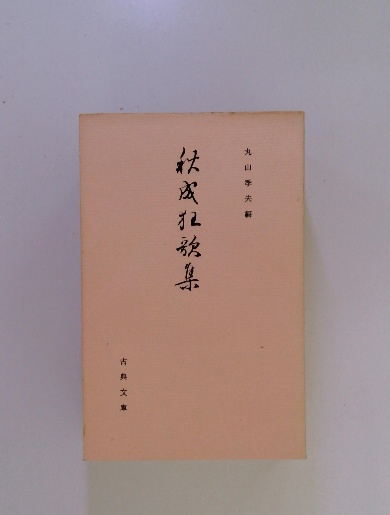 丸山季夫編
秋成狂歌集
古典文庫